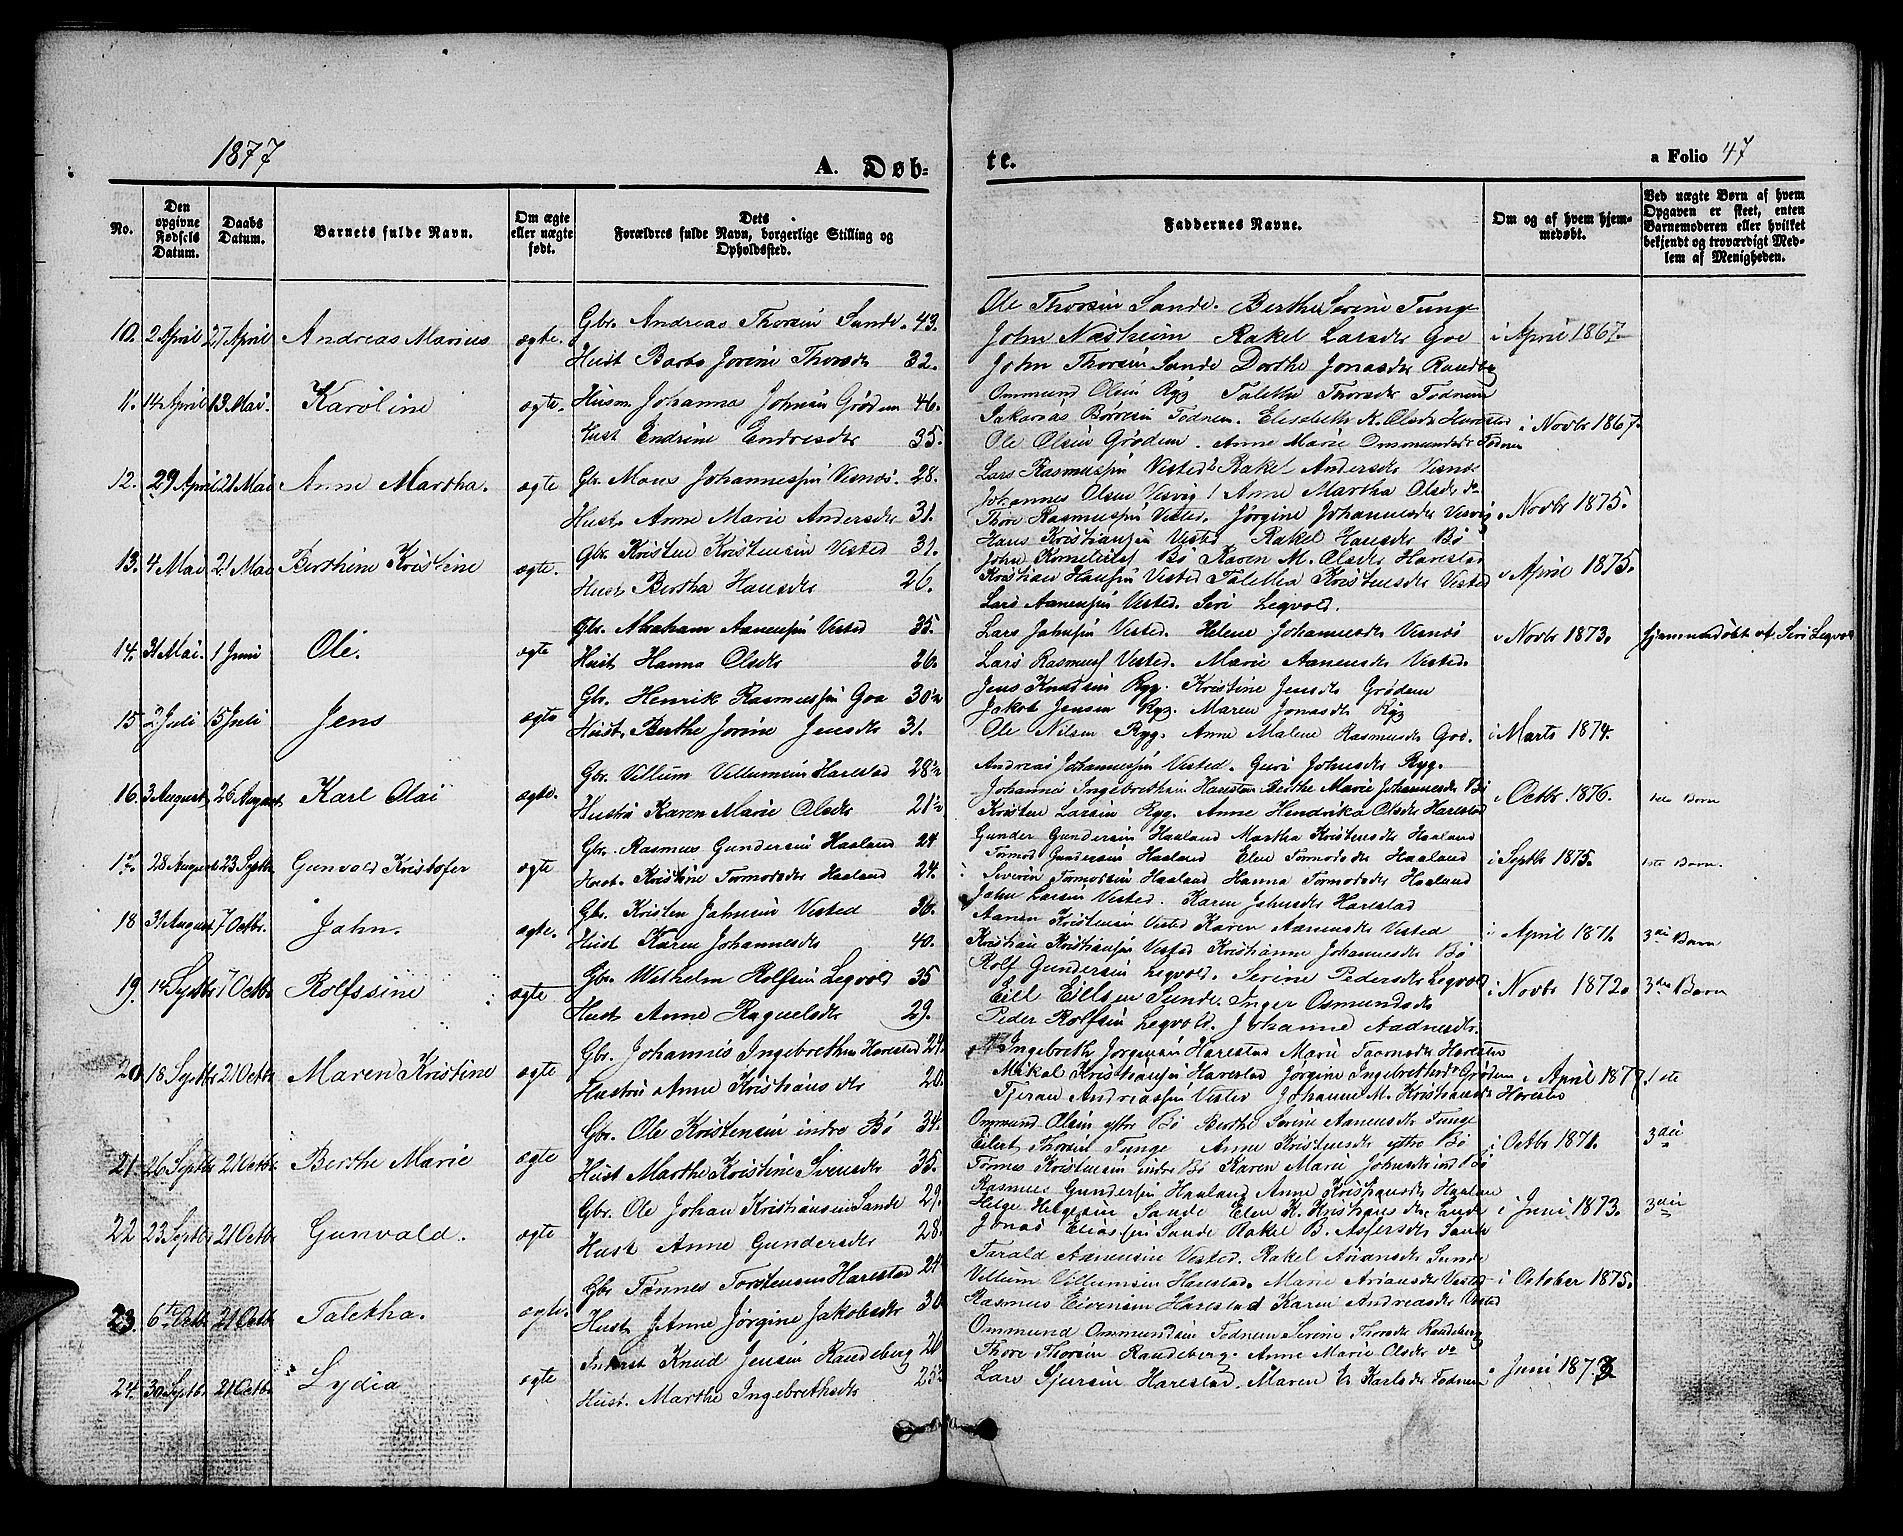 1877
A. Døb-
te.
a Folio 47
No.
Den opgivne Fødsels Datum.
Daabs Datum.
Barnets fulde Navn.
Om ægte eller uægte født.
Dets Forældres fulde Navn, borgerlige Stilling og Opholdssted.
Faddernes Navne.
Om og af hvem hjemmedøbt.
Ved uægte Børn af hvem Opgaven er skeet, enten Barnemoderen eller hvilket bekjendt og troværdigt Medlem af Menigheden.
10. 2 April 27 April Andreas Marius ægte.
Gbr. Andreas Thorsen Sande. 43.
Hust Barbo Jorine Thorsdr 32.
Ole Thorsen Sande. Berthe Serine Tunge
John Nesheim Rakel Larsdr Goe
John Thorsen Sande Dorthe Jonasdr Randeberg
i April 1867.
11. 14 April 13 Mai. Karoline ægte.
Husm. Johannes Johnsen Grødem 46.
Hust Endrine Endresdr 35.
Ommund Olsen Ryg Talethe Thorsdr Todnem
Sakarias Børresen Todnem. Elisabeth K. Olsdr Harestad
Ole Olsen Grødem. Anne Marie Ommundsdr Todnem
i Novbr 1867.
12. 29 April 21 Mai Anne Martha. ægte
Gbr. Mons Johannessen Visnæs 28.
Hust. Anne Marie Andersdr 31.
Lars Rasmussen Vested Rakel Andersdr Visnæs
Johannes Olsen Visvig Anne Martha Olsdr do
Thore Rasmussen Vested. Jørgine Johannesdr Visvig
i Novbr 1875.
13. 4 Mai 21 Mai Berthine Kristine ægte.
Gbr. Kristen Kristensen Vested 31.
Hust Bertha Hansdr 26.
Hans Kristiansen Vested Rakel Hansdr Bø
John Korneliussen Bø Karen M. Olsdr Harestad
Kristian Hansen Vested Taletha Kristensdr Vested
i April 1875.
14. 31 Mai. 1 Juni Ole. ægte
Gbr. Abraham Aanensen Vested 35.
Hust Hanna Olsdr 26.
Lars Aanensen Vested. Siri Legvold.
Lars Johnsen Vested. Helene Johannesdr Visnæs
Lars Rasmuss Vested. Marie Aanensdr Vested.
i Novbr 1873.
Hjemmedøbt af Siri Legvold
15 2 Juli 15 Juli Jens ægte
Gbr. Henrik Rasmussen Goe 30½
Hust. Berthe Jorine Jensdr 31.
Jens Knudsen Ryg. Kristine Jensdr Grødem
Jakob Jensen Ryg. Maren Jonasdr Ryg
Ole Nilsen Ryg. Anne Malene Rasmusdr Goe.
i Marts 1874.
16. 3 August 26 August Karl Olai ægte.
Gbr. Villum Villumsen Harestad 28½
Hustru Karen Marie Olsdr 21½
Andreas Johannessen Vested. Guri Johnsdr Ryg.
Johannes Ingebrethsen Harestad Berthe Marie Johannesdr Bø
Kristen Larsen Ryg. Anne Hendrikka Olsdr Harestad
i Octbr. 1876.
1ste Barn
17. 28 August 23 Septbr. Gunvald Kristofer ægte
Gbr. Rasmus Gundersen Haaland 24
Hust. Kristine Tormodsdr Haaland 24.
Gunder Gundersen Haaland Martha Kristensdr Haaland
Tormod Gundersen Haaland Elen Tormodsdr Haaland
Severin Tormodsen Haaland Hanna Tormodsdr Haaland
i Septbr 1875.
1ste Barn.
18 31 August 7 Octbr. John. ægte.
Gbr. Kristen Johnsen Vested 36.
Hust Karen Johannesdr 40.
John Larsen Vested. Karen Johnsdr Harestad
Aanen Kristensen Vested Karen Aanensdr Vested
Kristian Kristiansen Vested Kristianne Johannesdr Bø
i April 1871.
3die Barn
19. 14 Septbr 7 Octbr Rolfssine ægte
Gbr. Wilhelm Rolfsen Legvold 35
Hust Anne Raguelsdr 29.
Rolf Gundersen Legvold. Serine Pedersdr Legvold
Eill Eillsen Sunde Inger Osmundsdr
Peder Rolfsen Legvold. Johanne Aadnesdr.
i Novbr 1872.
3die Barn
20 18 Septbr 21 Octbr Maren Kristine ægte
Gbr. Johannes Ingebrethsen Harestad 24.
Hustru Anne Kristiansdr 20.
Ingebreth Jørgensen Harestad Marie Harestad
Mikal Kristiansen Harestad Jørgine Ingebrethsdr Grødem
Andreassen Vested Johanne M. Kristiansdr Harestad
i April 1877.
1ste
21. 26 Septbr 21 Octbr. Berthe Marie ægte
Gbr. Ole Kristensen indre Bø 34.
Hust Marthe Kristine Svensdr 35.
Ommund Olsen ystre Bø Berthe Serine Aanensdr Tunge
Eilert Thorsen Tunge Anne Kristensdr ystre Bø
Tørres Kristensen indre Bø Karen Marie Johnsdr ind Bø
i Octbr 1871.
3die
22 23 Septbr 21 Octbr. Gunvald. ægte
Gbr. Ole Johan Kristiansen Sande 29.
Hust Anne Gundersdr 28.
Rasmus Gundersen Haaland Anne Kristiansdr Haaland
Helge Helgesen Sande Elen K. Kristiansdr Sande
Jonas Eliassen Sande Rakel B. Asgersdr Sande
i Juni 1873.
3die
23. 6te Octb 21 Octb Taletha. ægte.
Gbr Tønnes Torstensen Harestad 24
Hust Anne Jørgine Jakobsdr 30
Tarald Aanensen Vested. Rakel Aransdr Sunde
Villum Villumsen Harestad. Marie Ariansdr Vested
Rasmus Eivensen Harestad Karen Andreasdr Vested
i October 1875.
24. 30 Septbr. 21 Octbr. Lydia ægte
Inderst Knud Jensen Randeberg 26
Hust. Marthe Ingebrethsdr 25½
Ommund Ommundsen Todnem Serine Thorsdr Randeberg
Thore Thorsen Randeberg. Anne Marie Olsdr do
Lars Sjursen Harestad. Maren E. Karlsdr Todnem
i Juni 1873